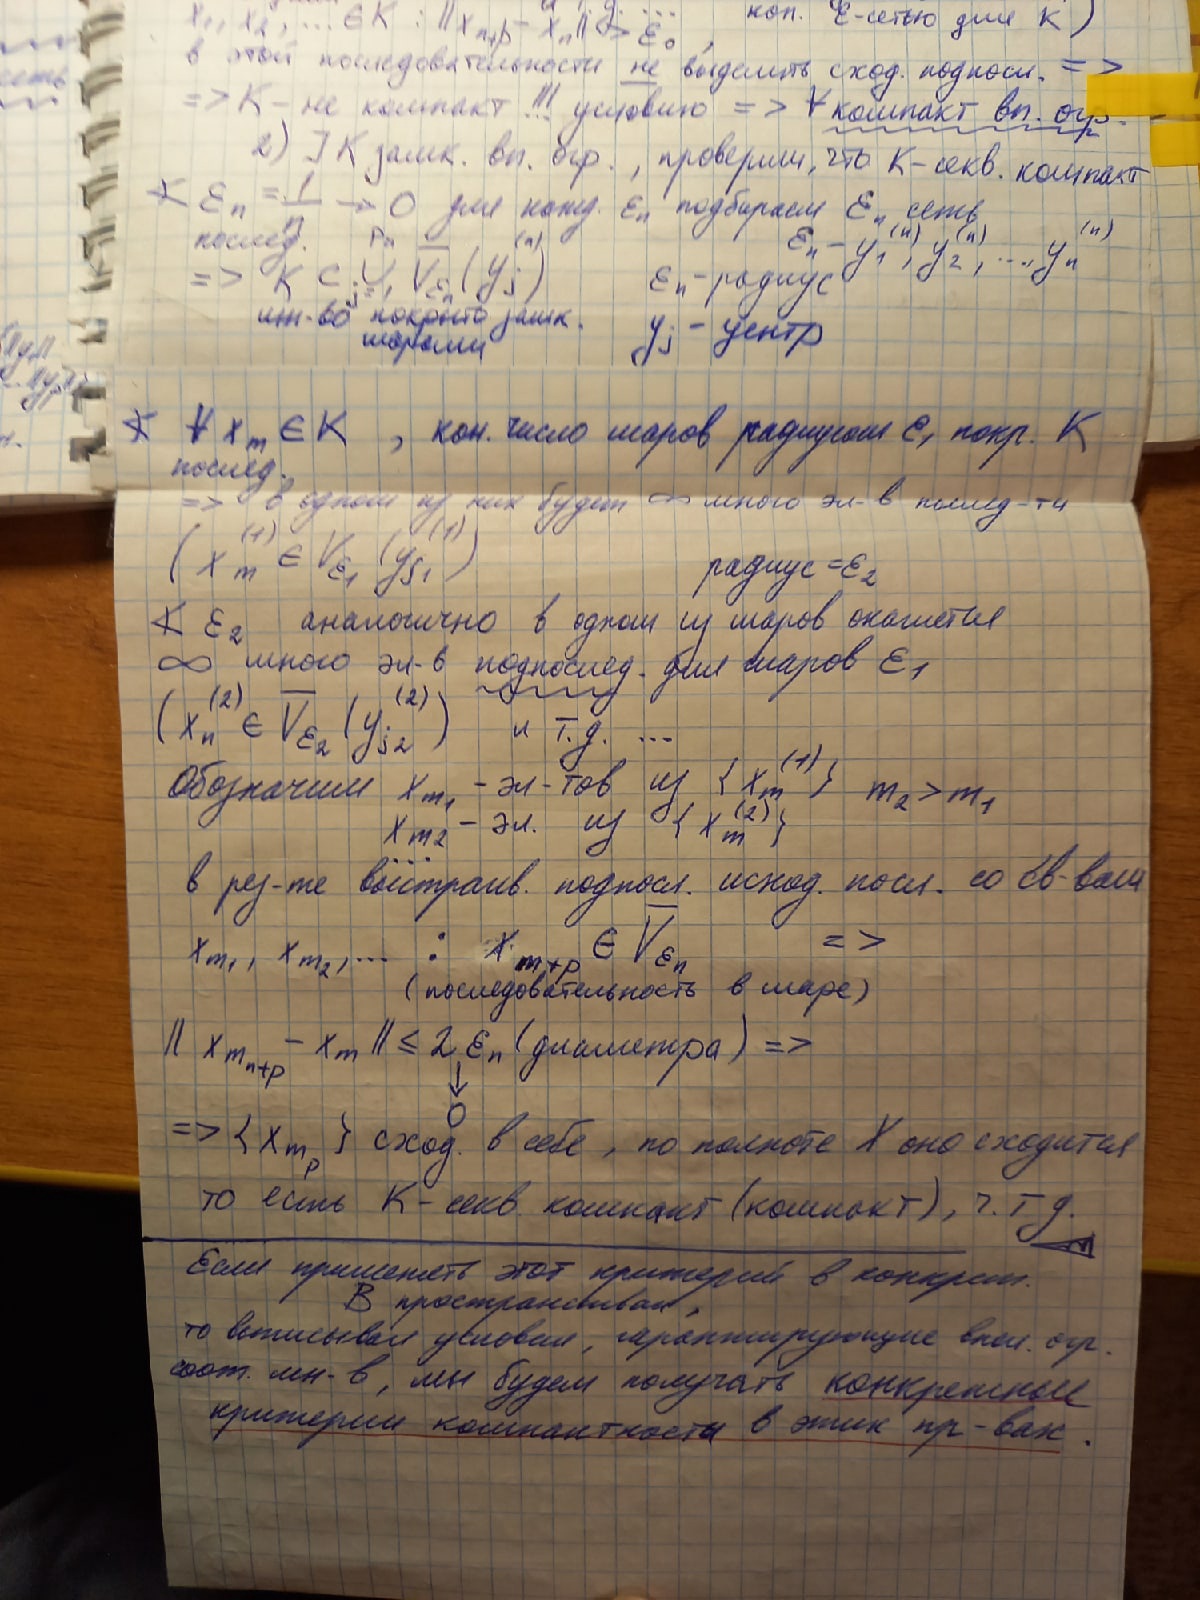 x₁, x₂, ... ∈ K : ||x_{n+p} − x_n|| > ε₀, кон. ε-сетью для K)
в этой последовательности не выделить сход. подпосл. =>
=> K – не компакт !!! условию => ∀ компакт вп. огр.
2) ] K замк. вп. огр., проверим, что K – секв. компакт
∢ ε_n = 1/n → 0 для кажд. ε_n подбираем ε_n сеть
послед. ε_n – y₁^(n), y₂^(n), ..., y_n^(n)
=> K ⊂ ⋃_{j=1}^{p_n} V̄_{ε_n}(y_j^(n)) ε_n – радиус
мн-во покрыто замк. шарами y_j – центр
∢ ∀ x_m ∈ K, кон. число шаров радиусом ε₁ покр. K
послед.
=> в одном из них будет ∞ много эл-в послед-ти
(x_m^(1) ∈ V̄_{ε₁}(y_{j₁}^(1)) радиус = ε₂
∢ ε₂ аналогично в одном из шаров окажется
∞ много эл-в подпослед. для шаров ε₁
(x_n^(2) ∈ V̄_{ε₂}(y_{j₂}^(2)) и т.д. ...
Обозначим x_{m₁} – эл-тов из {x_m^(1)} m₂ > m₁
x_{m₂} – эл. из {x_m^(2)}
...
в рез-те выстраив. подпосл. исход. посл. со св-вом
x_{m₁}, x_{m₂}, ... : x_{m+p} ∈ V̄_{ε_n} =>
(последовательность в шаре)
||x_{m_{n+p}} − x_m|| ≤ 2 ε_n (диаметра) =>
↓
0
=> {x_{m_p}} сход. в себе, по полноте X оно сходится
то есть K – секв. компакт (компакт), ч.т.д.
Если применять этот критерий в конкрет.
B пространствах,
то выписывая условия, гарантирующие вполн. огр.
соот. мн-в, мы будем получать конкретные
критерии компактности в этих пр-вах.